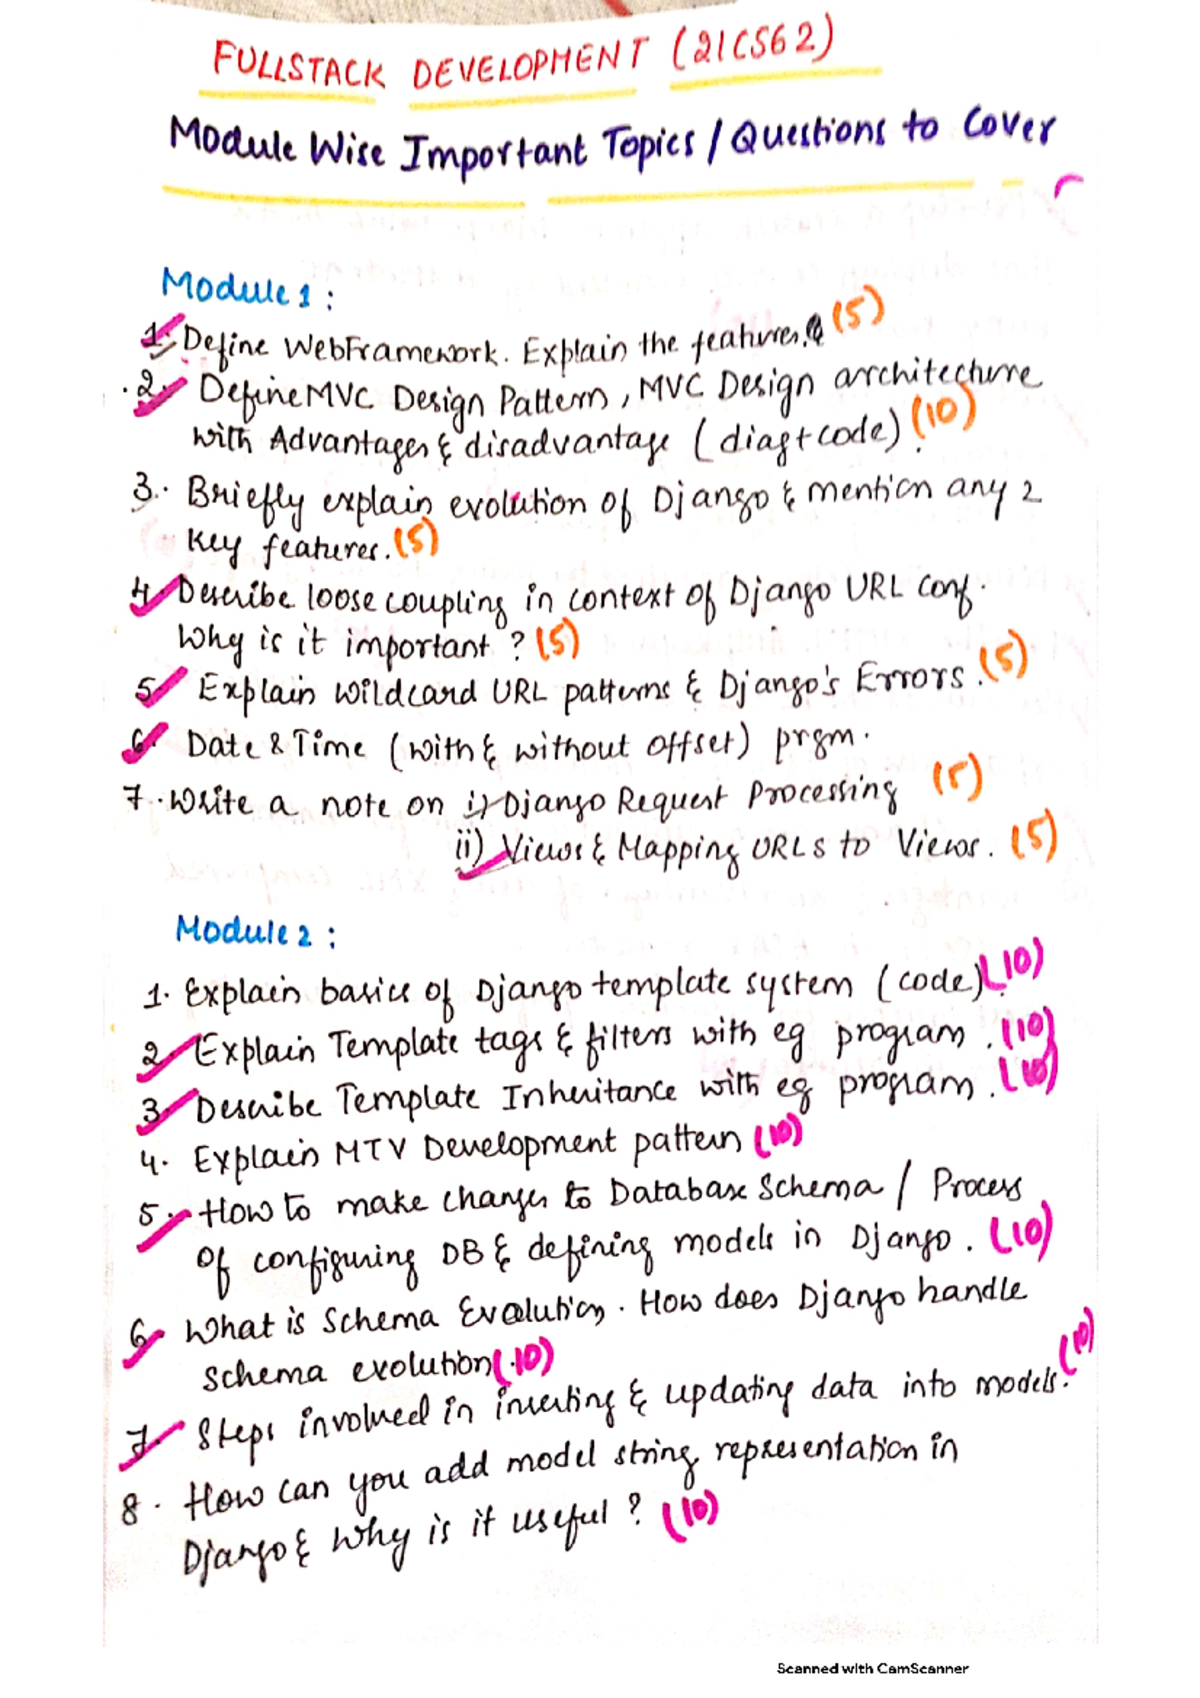 FULLSTACK DEVELOPMENT (21CS62)
Module Wise Important Topics / Questions to Cover
Module 1 :
1. Define WebFramework. Explain the features. (5)
2. Define MVC Design Pattern, MVC Design architecture
with Advantages & disadvantage (diag+code) (10)
3. Briefly explain evolution of Django & mention any 2
key features. (5)
4. Describe loose coupling in context of Django URL conf.
Why is it important ? (5)
5. Explain wildcard URL patterns & Django's Errors. (5)
6. Date & Time (with & without offset) prgm.
7. Write a note on i) Django Request Processing (5)
ii) Views & Mapping URLs to Views. (5)
Module 2 :
1. Explain basics of Django template system (code) (10)
2. Explain Template tags & filters with eg program. (10)
3. Describe Template Inheritance with eg program. (10)
4. Explain MTV Development pattern (10)
5. How to make changes to Database Schema / Process
of configuring DB & defining models in Django. (10)
6. What is Schema Evolution. How does Django handle
schema exolution (10)
7. Steps involved in inserting & updating data into models. (10)
8. How can you add model string representation in
Django & Why is it useful ? (10)
Scanned with CamScanner